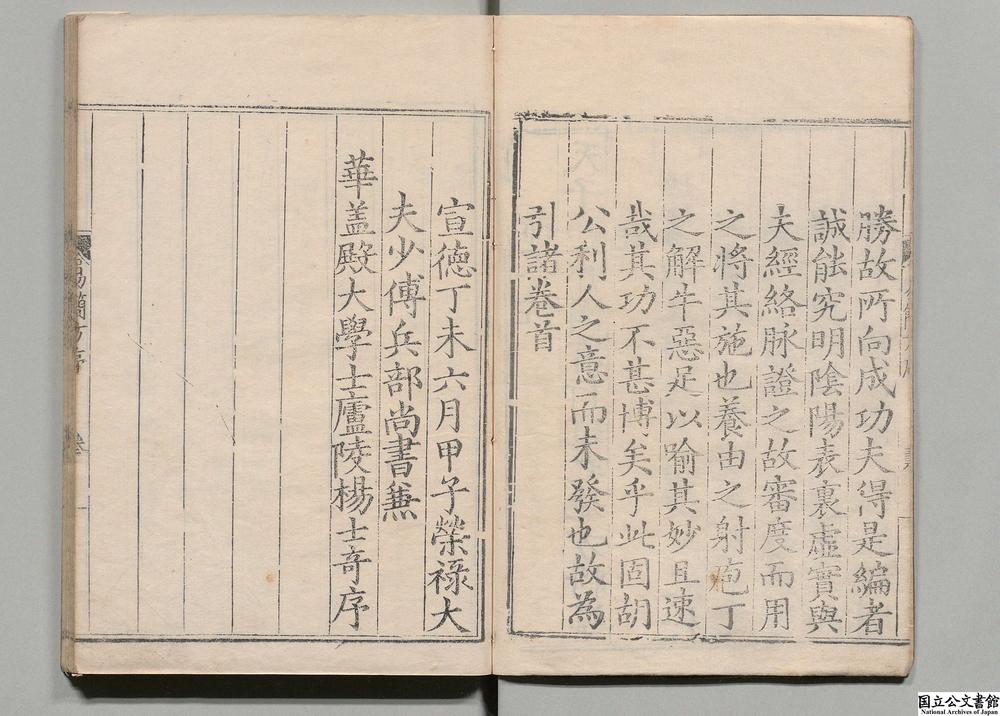 勝故所向成功夫得是編者
誠能究明陰陽表裏虛實與
夫經絡脉證之故審度而用
之將其施也養由之射庖丁
之解牛惡足以喻其妙且速
哉其功不甚博矣乎此固胡
公利人之意而未發也故為
引諸卷首
宣德丁未六月甲子榮祿大
夫少傅兵部尚書兼
華盖殿大學士廬陵楊士奇序
簡方序
国立公文書館
National Archives of Japan